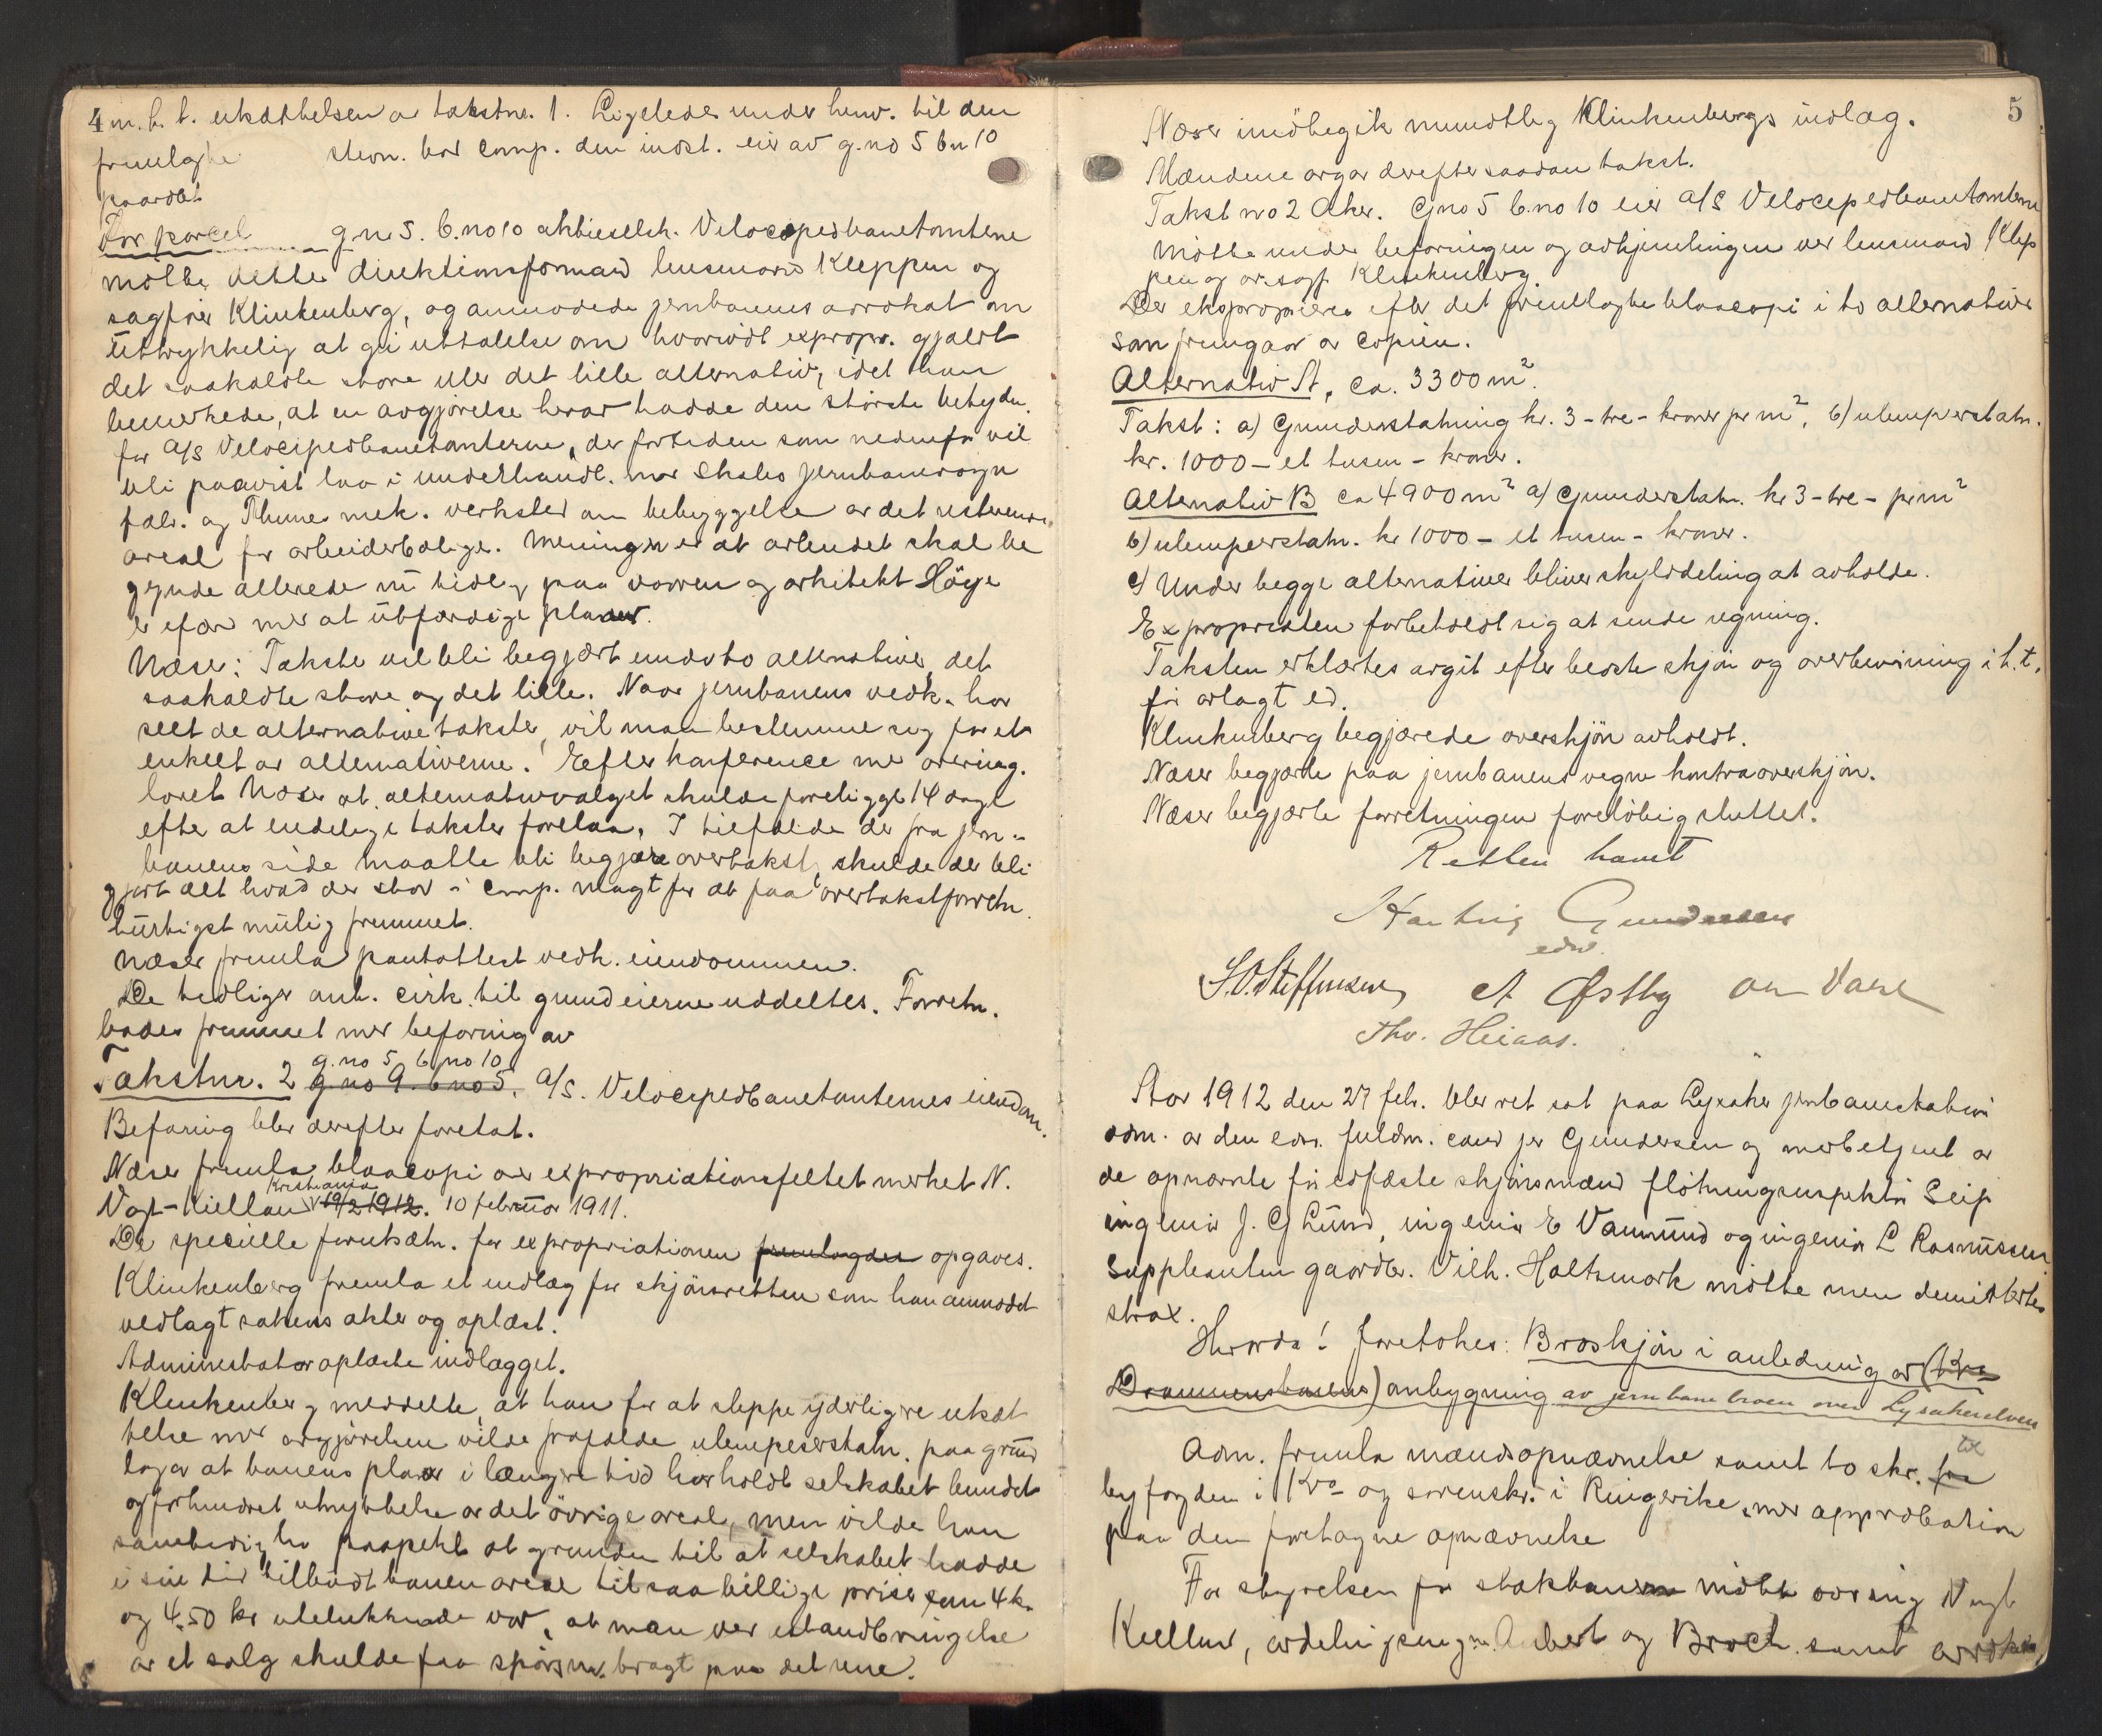 4
m.h.t. utsættelsen av takstnr. 1. Ligeledes under henv. til den
fremlagte stevn. lov comp. den indst. eier av g.no 5 bn 10
paaraabt
For parcel g.no 5. b.no 10 aktieselsk. Velocipedbanetomterne
mötte dettes direktionsformand lensmand Kleppen og
sagfører Klinkenberg, og anmodede jernbanens advokat om
uttrykkelig at gi uttalelse om hvorvidt expropr. gjaldt
det saakaldte store eller det lille alternativ, idet han
bemerkede, at en avgjørelse herav hadde den störste betydn.
for A/S Velocipedbanetomterne, der fortiden som nedenfor vil
bli paavist laa i underhandl. med Skabo jernbanevogn
fabr. og Thunes mek. verksted om bebyggelse av det resterende
areal for arbeiderbolige. Meningen er at arbeidet skal be
gynde allerede nu tidlig paa vaaren og arkitekt Höye
er ifærd med at utfærdige planer.
Næser: Takster vil bli begjært under to alternativer, det
saakaldte store og det lille. Naar jernbanens vedk. har
seet de alternative takster, vil man bestemme sig for et
enkelt av alternativerne. Efter konference med overing.
lovet Næser at alternativvalget skulde foreligge 14 dage
efter at endelige takster forelaa. I tilfælde der fra jern-
banens side maatte bli begjært overtakst, skulde der bli
gjort alt hvad der stod i comp. magt for at faa overtakstforretn.
hurtigst mulig fremmet.
Næser fremla pantattest vedk. eiendommen.
De tidliger anl. cirk. til grundeierne uddeltes. Forretn.
blades fremmet med befaring av
g.no 5 b.no 10
Takstnr. 2 g.no 9. b.no 5. A/S. Velocipedbanetomternes eiendom.
Befaring blev derefter foretat.
Næser fremla blaacopi over expropriationsfeltet merket N.
Kristiania
Vogt-Kielland 19/2 1912. 10 februar 1911.
De specielle forutsætn. for expropriationen fremlagdes opgaves.
Klinkenberg fremla et indlæg for skjönsretten som han anmodet
vedlagt sakens akter og oplæst.
Administrator oplæste indlægget.
Klinkenberg meddelte, at han for at slippe yderligere utsæt
telse med avgjörelsen vilde frafalde ulempeserstatn. paa grund
lag av at banens planer i længere tid har holdt selskabet bundet
og forhindret utnyttelse av det övrige areal, men vilde han
samtidig ha paapekt at grunden til at selskabet hadde
i sin tid tilbudt banen areal til saa billige priser som 4 kr
og 4.50 kr utelukkende var, at man ved istandbringelse
av et salg skulde faa spörsm. bragt paa det rene.
5
Næser imödegik mundtlig Klinkenbergs indlæg.
Mændene avgav derefter saadan takst.
Takst no 2 Aker. G.no 5 b.no 10 eier A/S Velocipedbanetomterne
mötte under befaringen og avhjemlingen ved lensmand Klep
pen og o.r.sagf Klinkenberg.
Der eksproprieres efter det fremlagte blaacopi i to alternativer
som fremgaar av copien.
Alternativ A, ca. 3300 m².
Takst: a) Grunderstatning kr. 3-tre-kroner pr m², b) ulempeerstatn.
kr. 1000 - et tusen - kroner.
Alternativ B ca 4900 m² a) Grunderstatn. kr 3-tre- pr m²
b) ulempeerstatn. kr 1000 - et tusen - kroner.
c) Under begge alternativer bliver skylddeling at avholde.
Expropriaten forbeholdt sig at sende regning.
Taksten erklærtes avgit efter bedste skjön og overbevisning i h.t.
för avlagt ed.
Klinkenberg begjærede overskjön avholdt.
Næser begjærte paa jernbanens vegne kontraoverskjön.
Næser begjærte forretningen forelöbig sluttet.
Retten hævet
Hartvig Gundersen
edsv.
S.O. Steffensen A Østby
Thv. Heiaas.
Aar 1912 den 27 feb. blev ret sat paa Lysaker jernbanestation
adm. av den edsv. fuldm. cand jur Gundersen og medbetjent av
de opnævnte för edfæste skjönsmænd flötningsinspektör Seip
ingeniör J. G Lund, ingeniör E Vammund og ingeniör L Rasmussen
Suppleanten gaardbr. Vilh. Holtsmark mötte men demitertes
strax.
Hvorda! foretokes: Broskjön i anledning av (Kra
Drammensbanens) ombygning av jernbanebroen over Lysakerelven
Adm. fremla mændsopnævnelse samt to skr. fra til
byfogden i Kra og sorenskr. i Ringerike, med approbation
paa den foretagne opnævnelse
For styrelsen for statsbanerne mötte overing Vogt
Kielland, avdelingsing. Aubert og Broch samt advokat